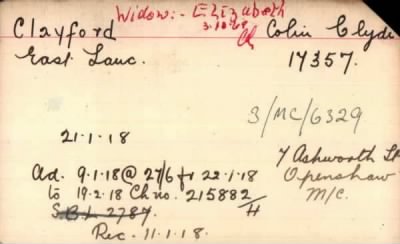 Widow:- Elizabeth
3.10.68
Clayford Colin Clyde
East Lanc. 17357.
3/MC/6329
21.1.18
Ad. 9.1.18 @ 27/6 fr 22.1.18
to 19.2.18 Ch no. 215882/H
7 Ashworth St
Openshaw
M/c.
S.B.L 2784.
Rec. 11.1.18.